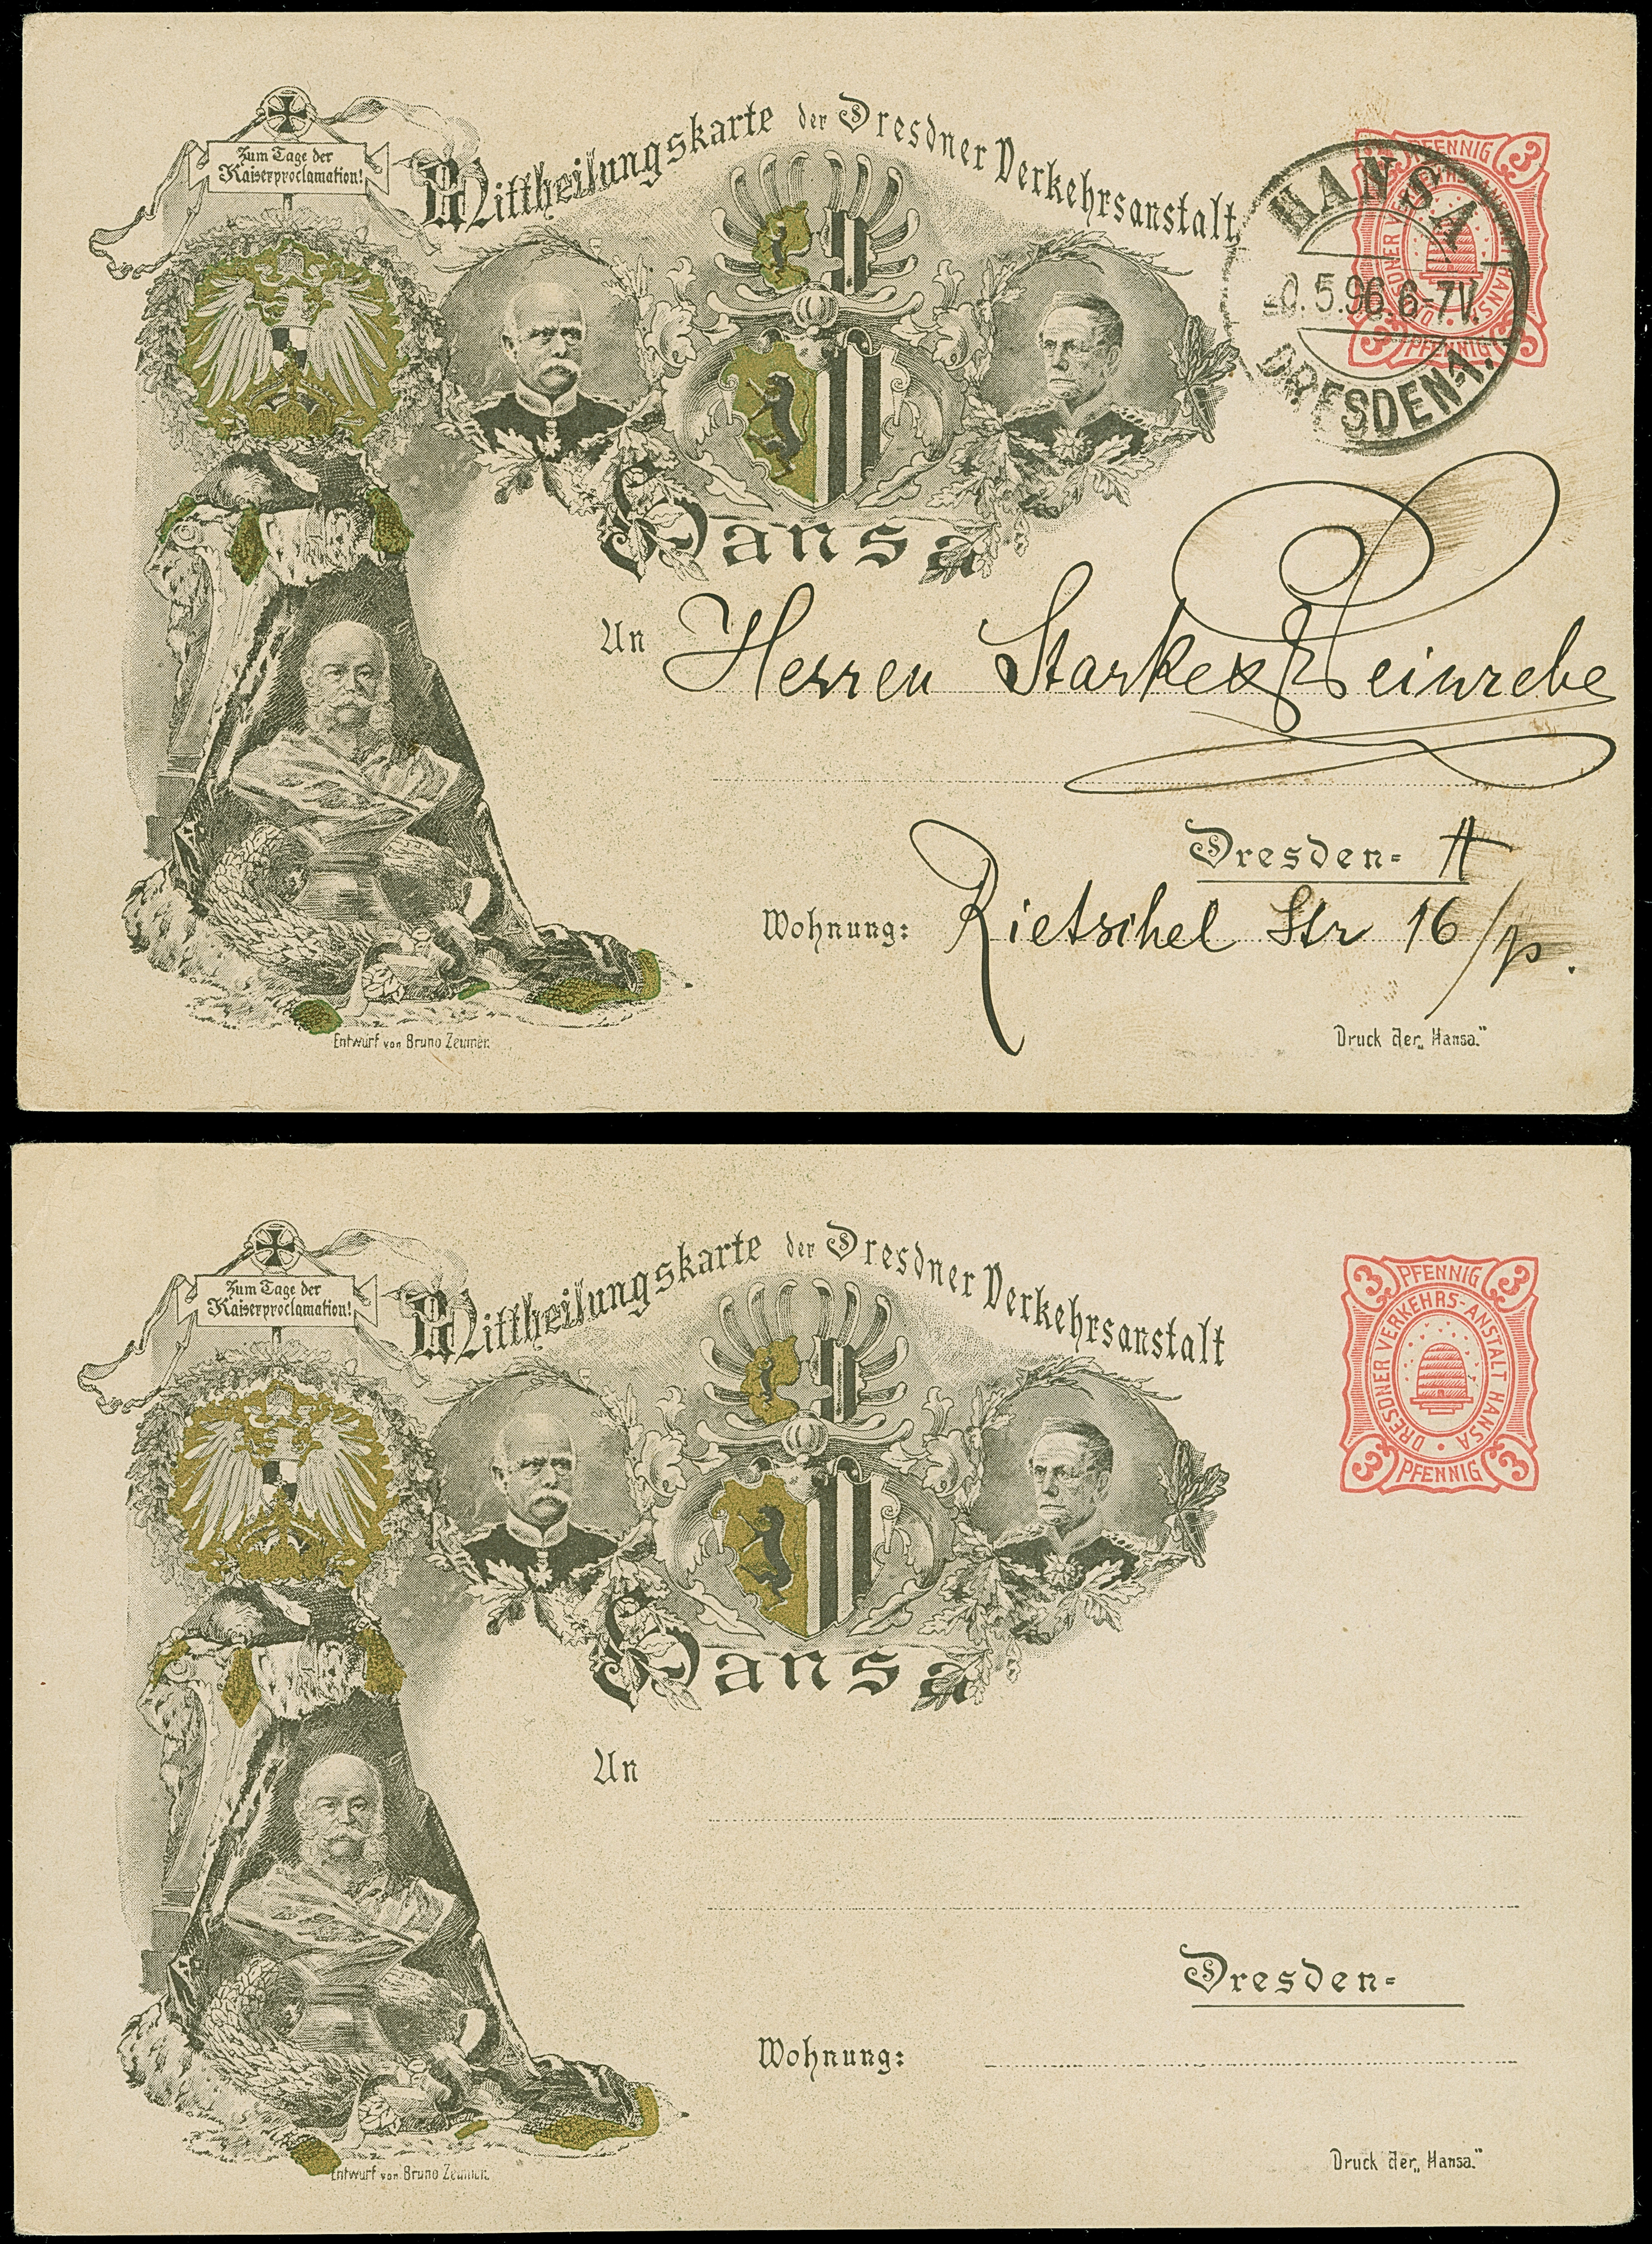 Zum Tage der
Kaiserproclamation!
Mittheilungskarte der Dresdner Verkehrsanstalt
Hansa
3 PFENNIG 3
DRESDNER VERKEHRS-ANSTALT HANSA
3 PFENNIG 3
HANSA
0.5.96.6-7V.
DRESDEN-A.
An Herren Starke & Weinrebe
Dresden- A
Wohnung: Rietschel Str 16/p.
Entwurf von Bruno Zeumer.
Druck der „Hansa."
Zum Tage der
Kaiserproclamation!
Mittheilungskarte der Dresdner Verkehrsanstalt
Hansa
3 PFENNIG 3
DRESDNER VERKEHRS-ANSTALT HANSA
3 PFENNIG 3
An
Dresden-
Wohnung:
Entwurf von Bruno Zeumer.
Druck der „Hansa."